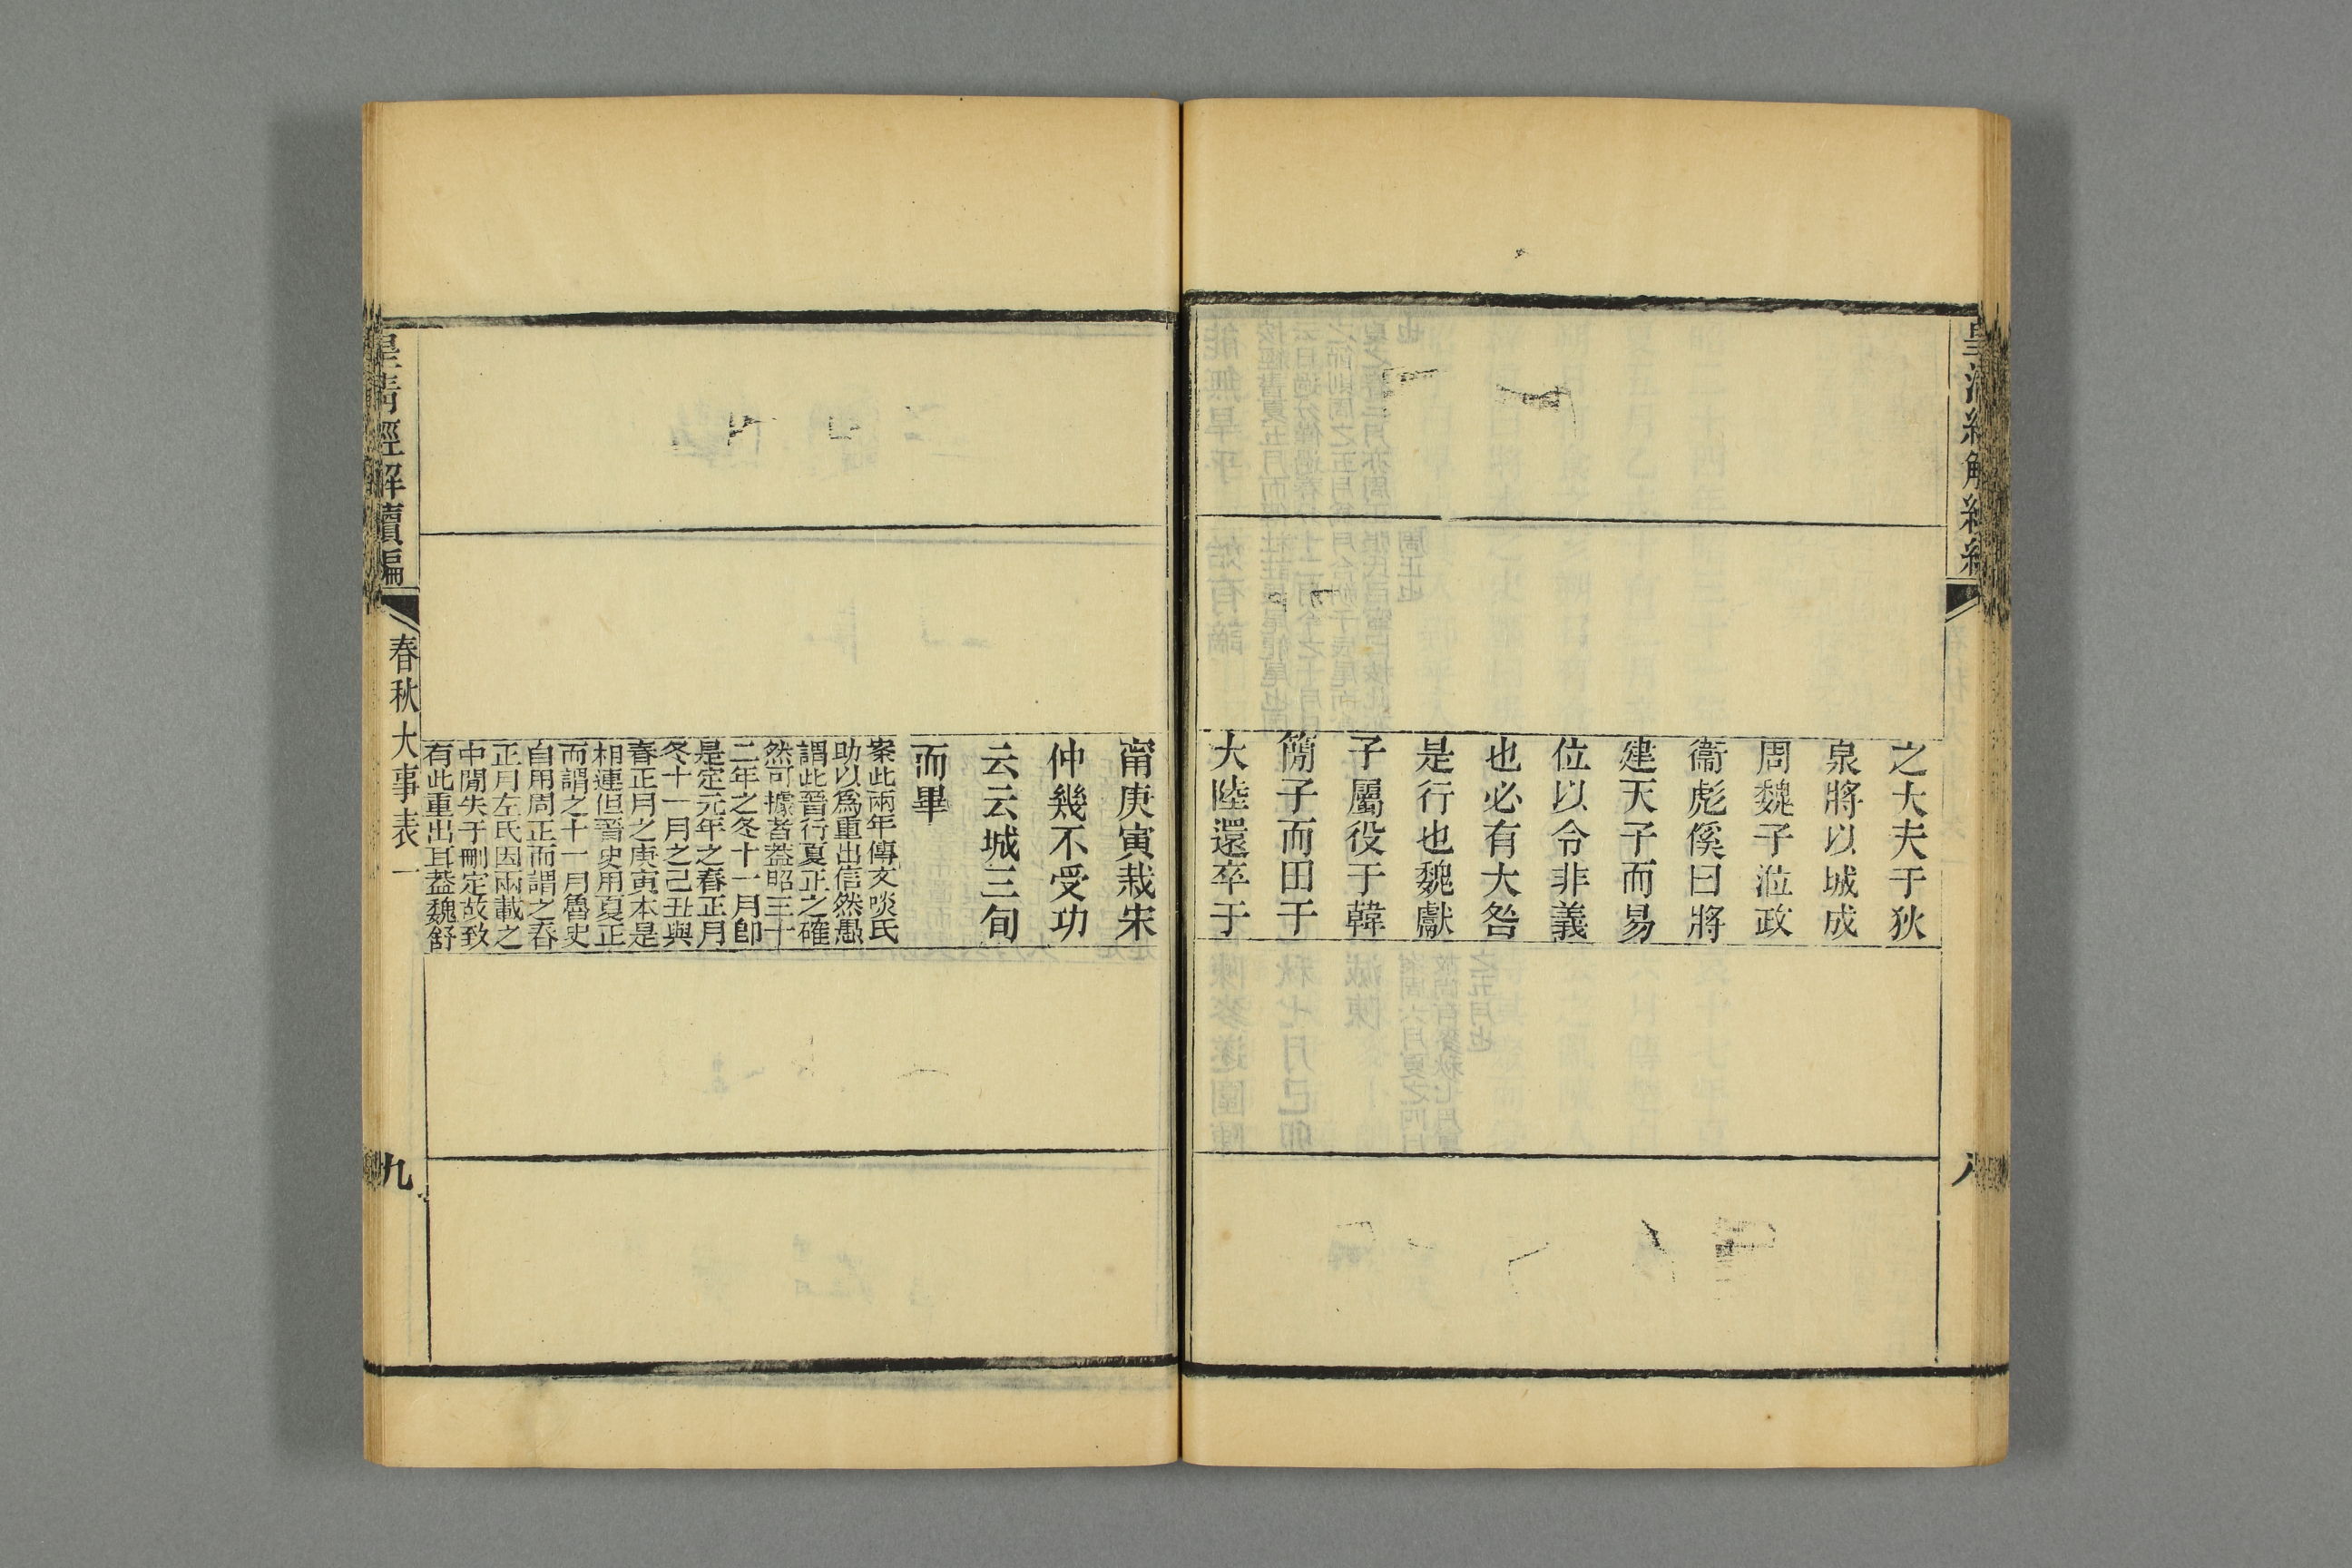 之大夫于狄
泉將以城成
周魏子涖政
衞彪傒曰將
建天子而易
位以令非義
也必有大咎
是行也魏獻
子屬役于韓
簡子而田于
大陸還卒于
甯庚寅栽宋
仲幾不受功
云云城三旬
而畢
案此兩年傳文啖氏
助以爲重出信然愚
謂此晉行夏正之確
然可據者葢昭三十
二年之冬十一月卽
是定元年之春正月
冬十一月之己丑與
春正月之庚寅本是
相連但晉史用夏正
而謂之十一月魯史
自用周正而謂之春
正月左氏因兩載之
中閒失于刪定故致
有此重出耳葢魏舒
皇清經解續編
春秋大事表一
九
八